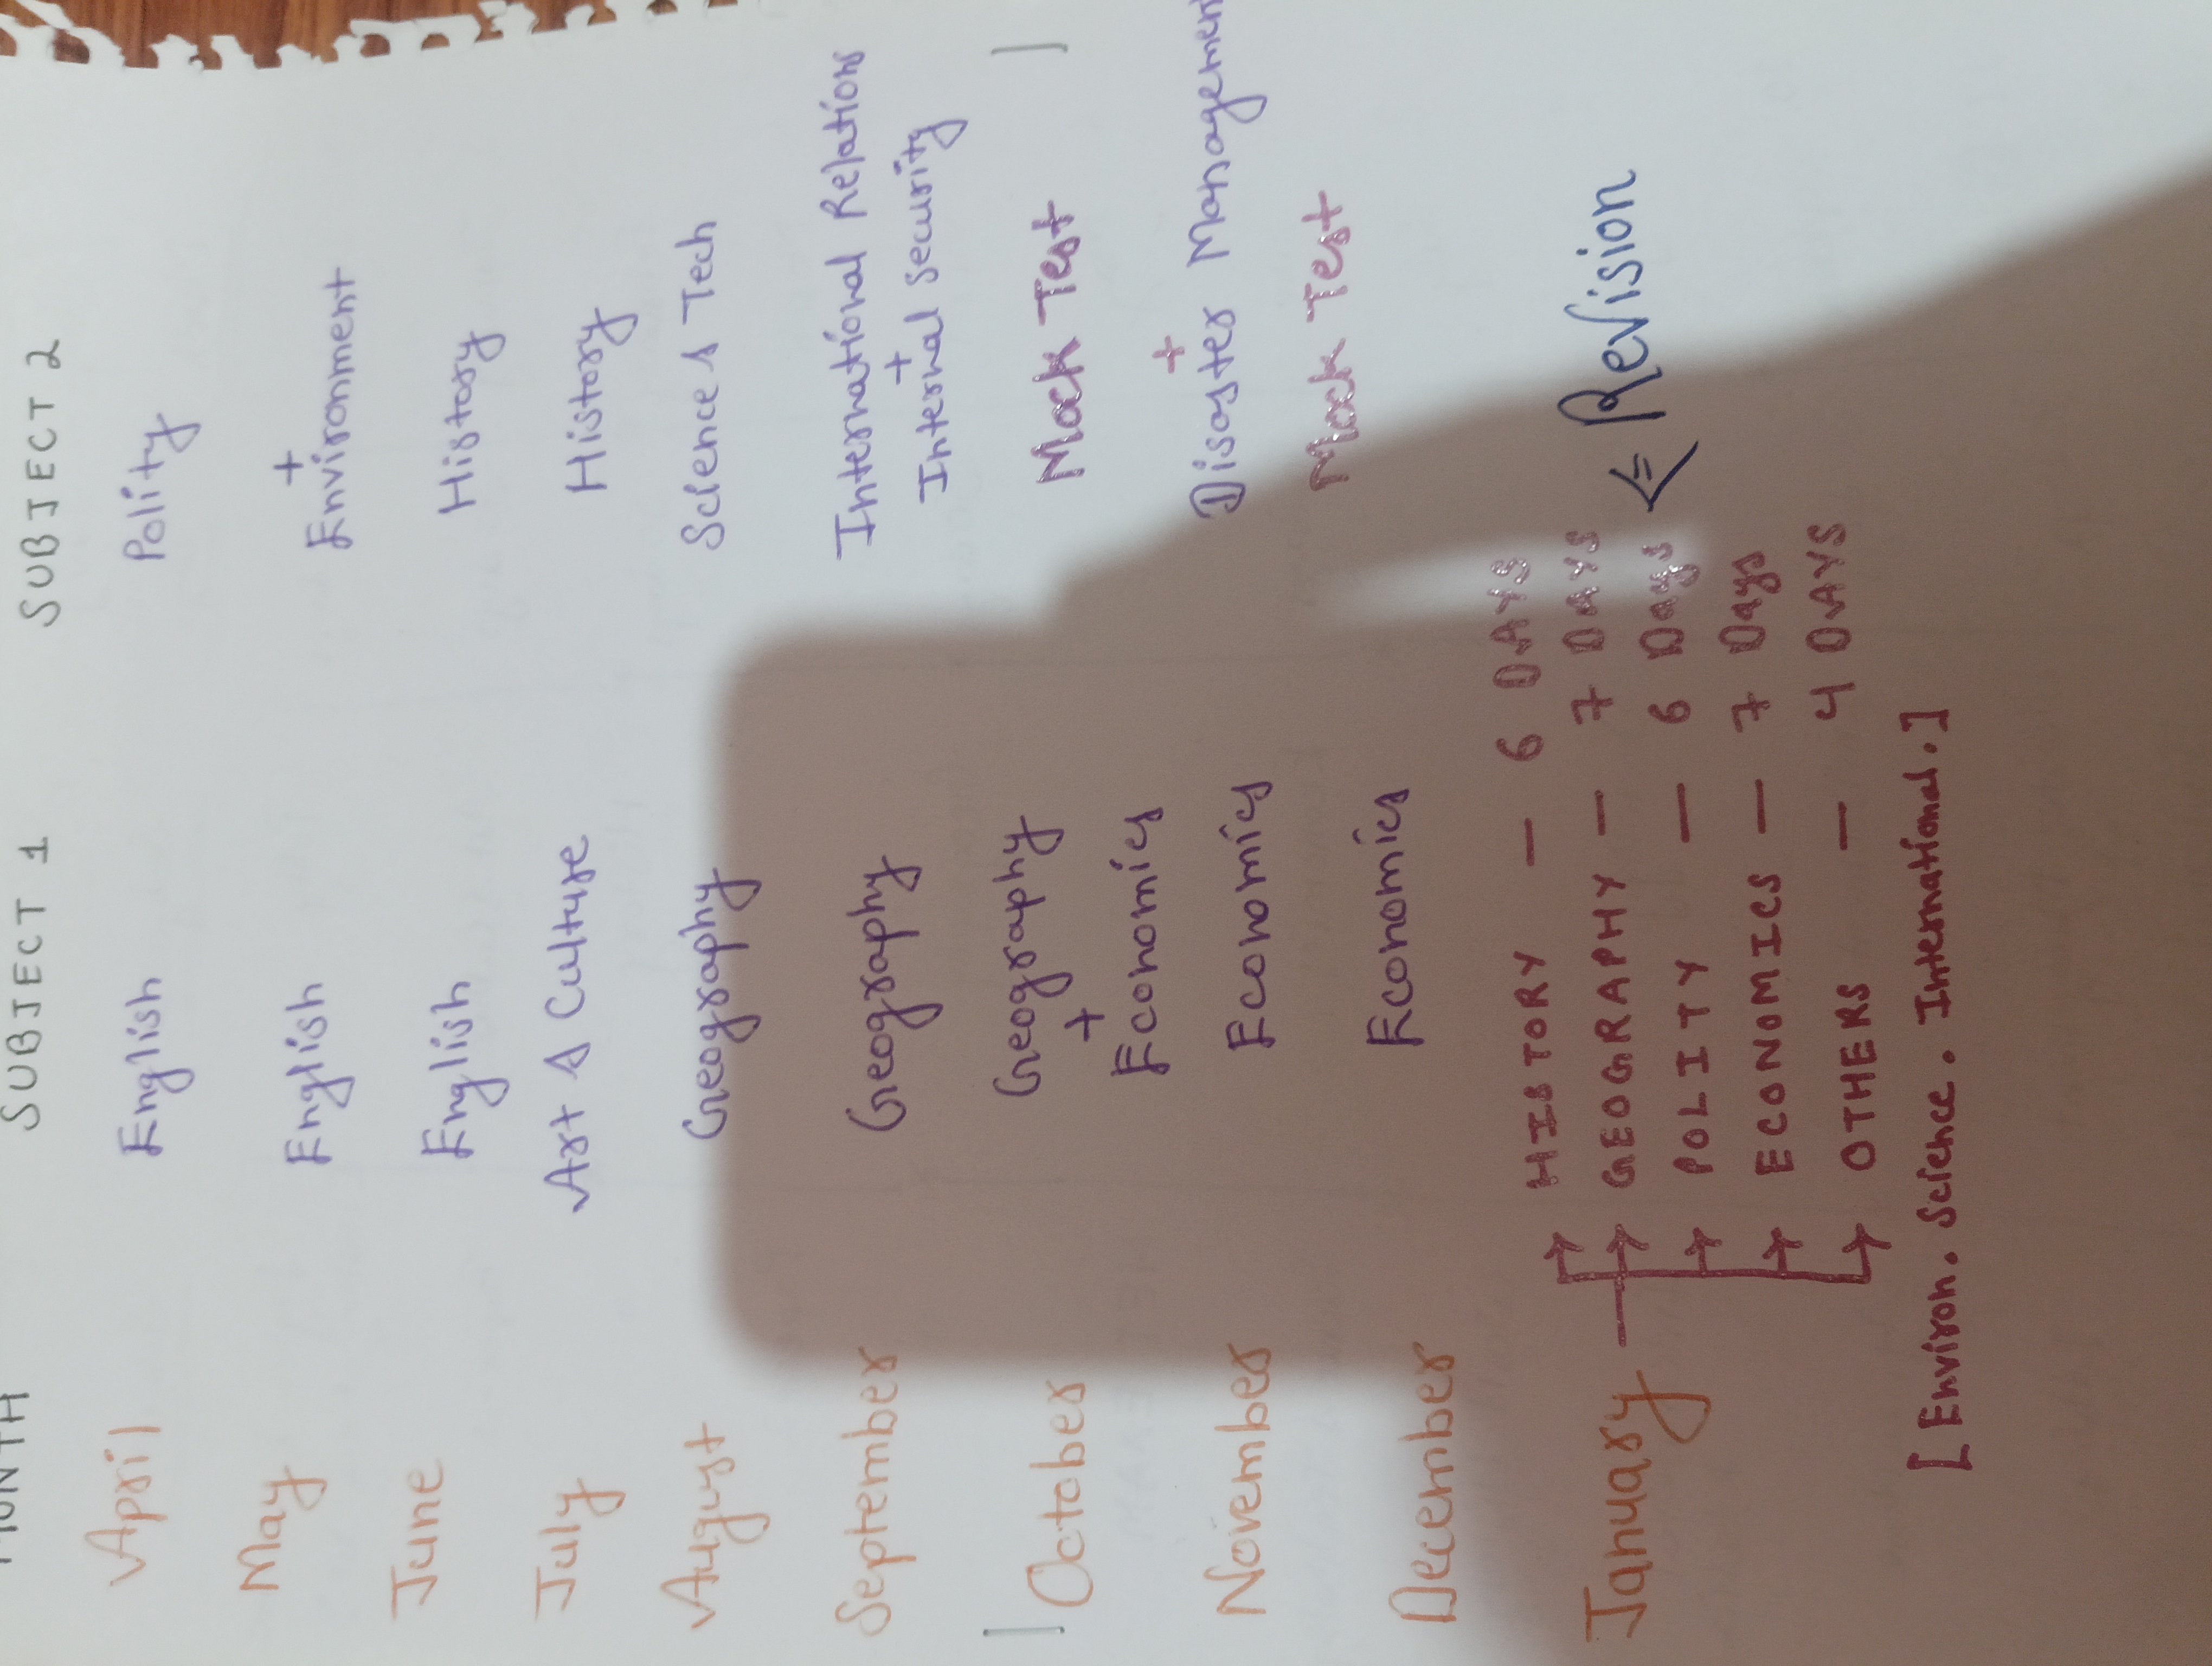 MONTH SUBJECT 1 SUBJECT 2
April English Polity
May English + Environment
June English History
July Art & Culture History
August Geography Science & Tech
September Geography International Relations
+
Internal Security
October Geography Mock Test
+
Economics
+
November Economics Disaster Management
December Economics Mock Test
January HISTORY — 6 DAYS
GEOGRAPHY — 7 DAYS
POLITY — 6 Days ⇐ Revision
ECONOMICS — 7 Days
OTHERS — 4 DAYS
[Environ. Science. International.]